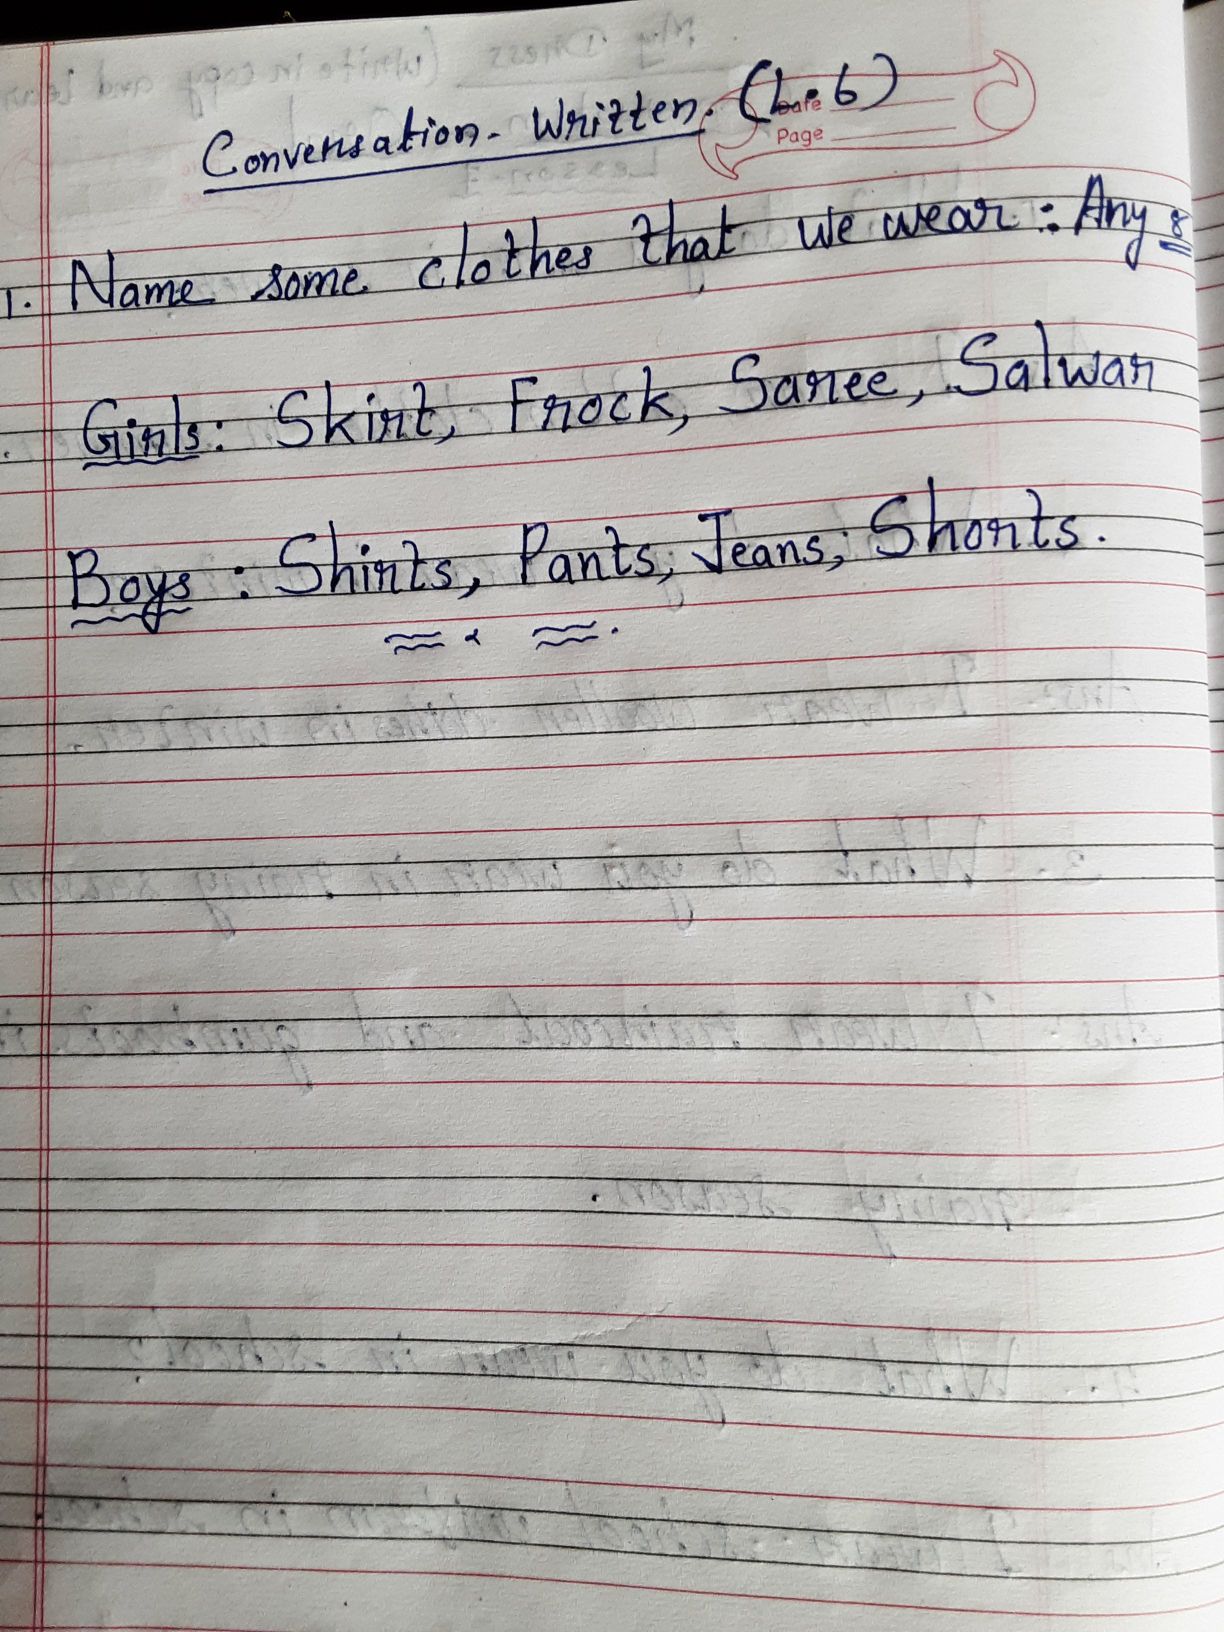 Conversation - Written. (L. 6)
Date
Page
1. Name some clothes that we wear : Any 8
Girls : Skirt, Frock, Saree, Salwar
Boys : Shirts, Pants, Jeans, Shorts.